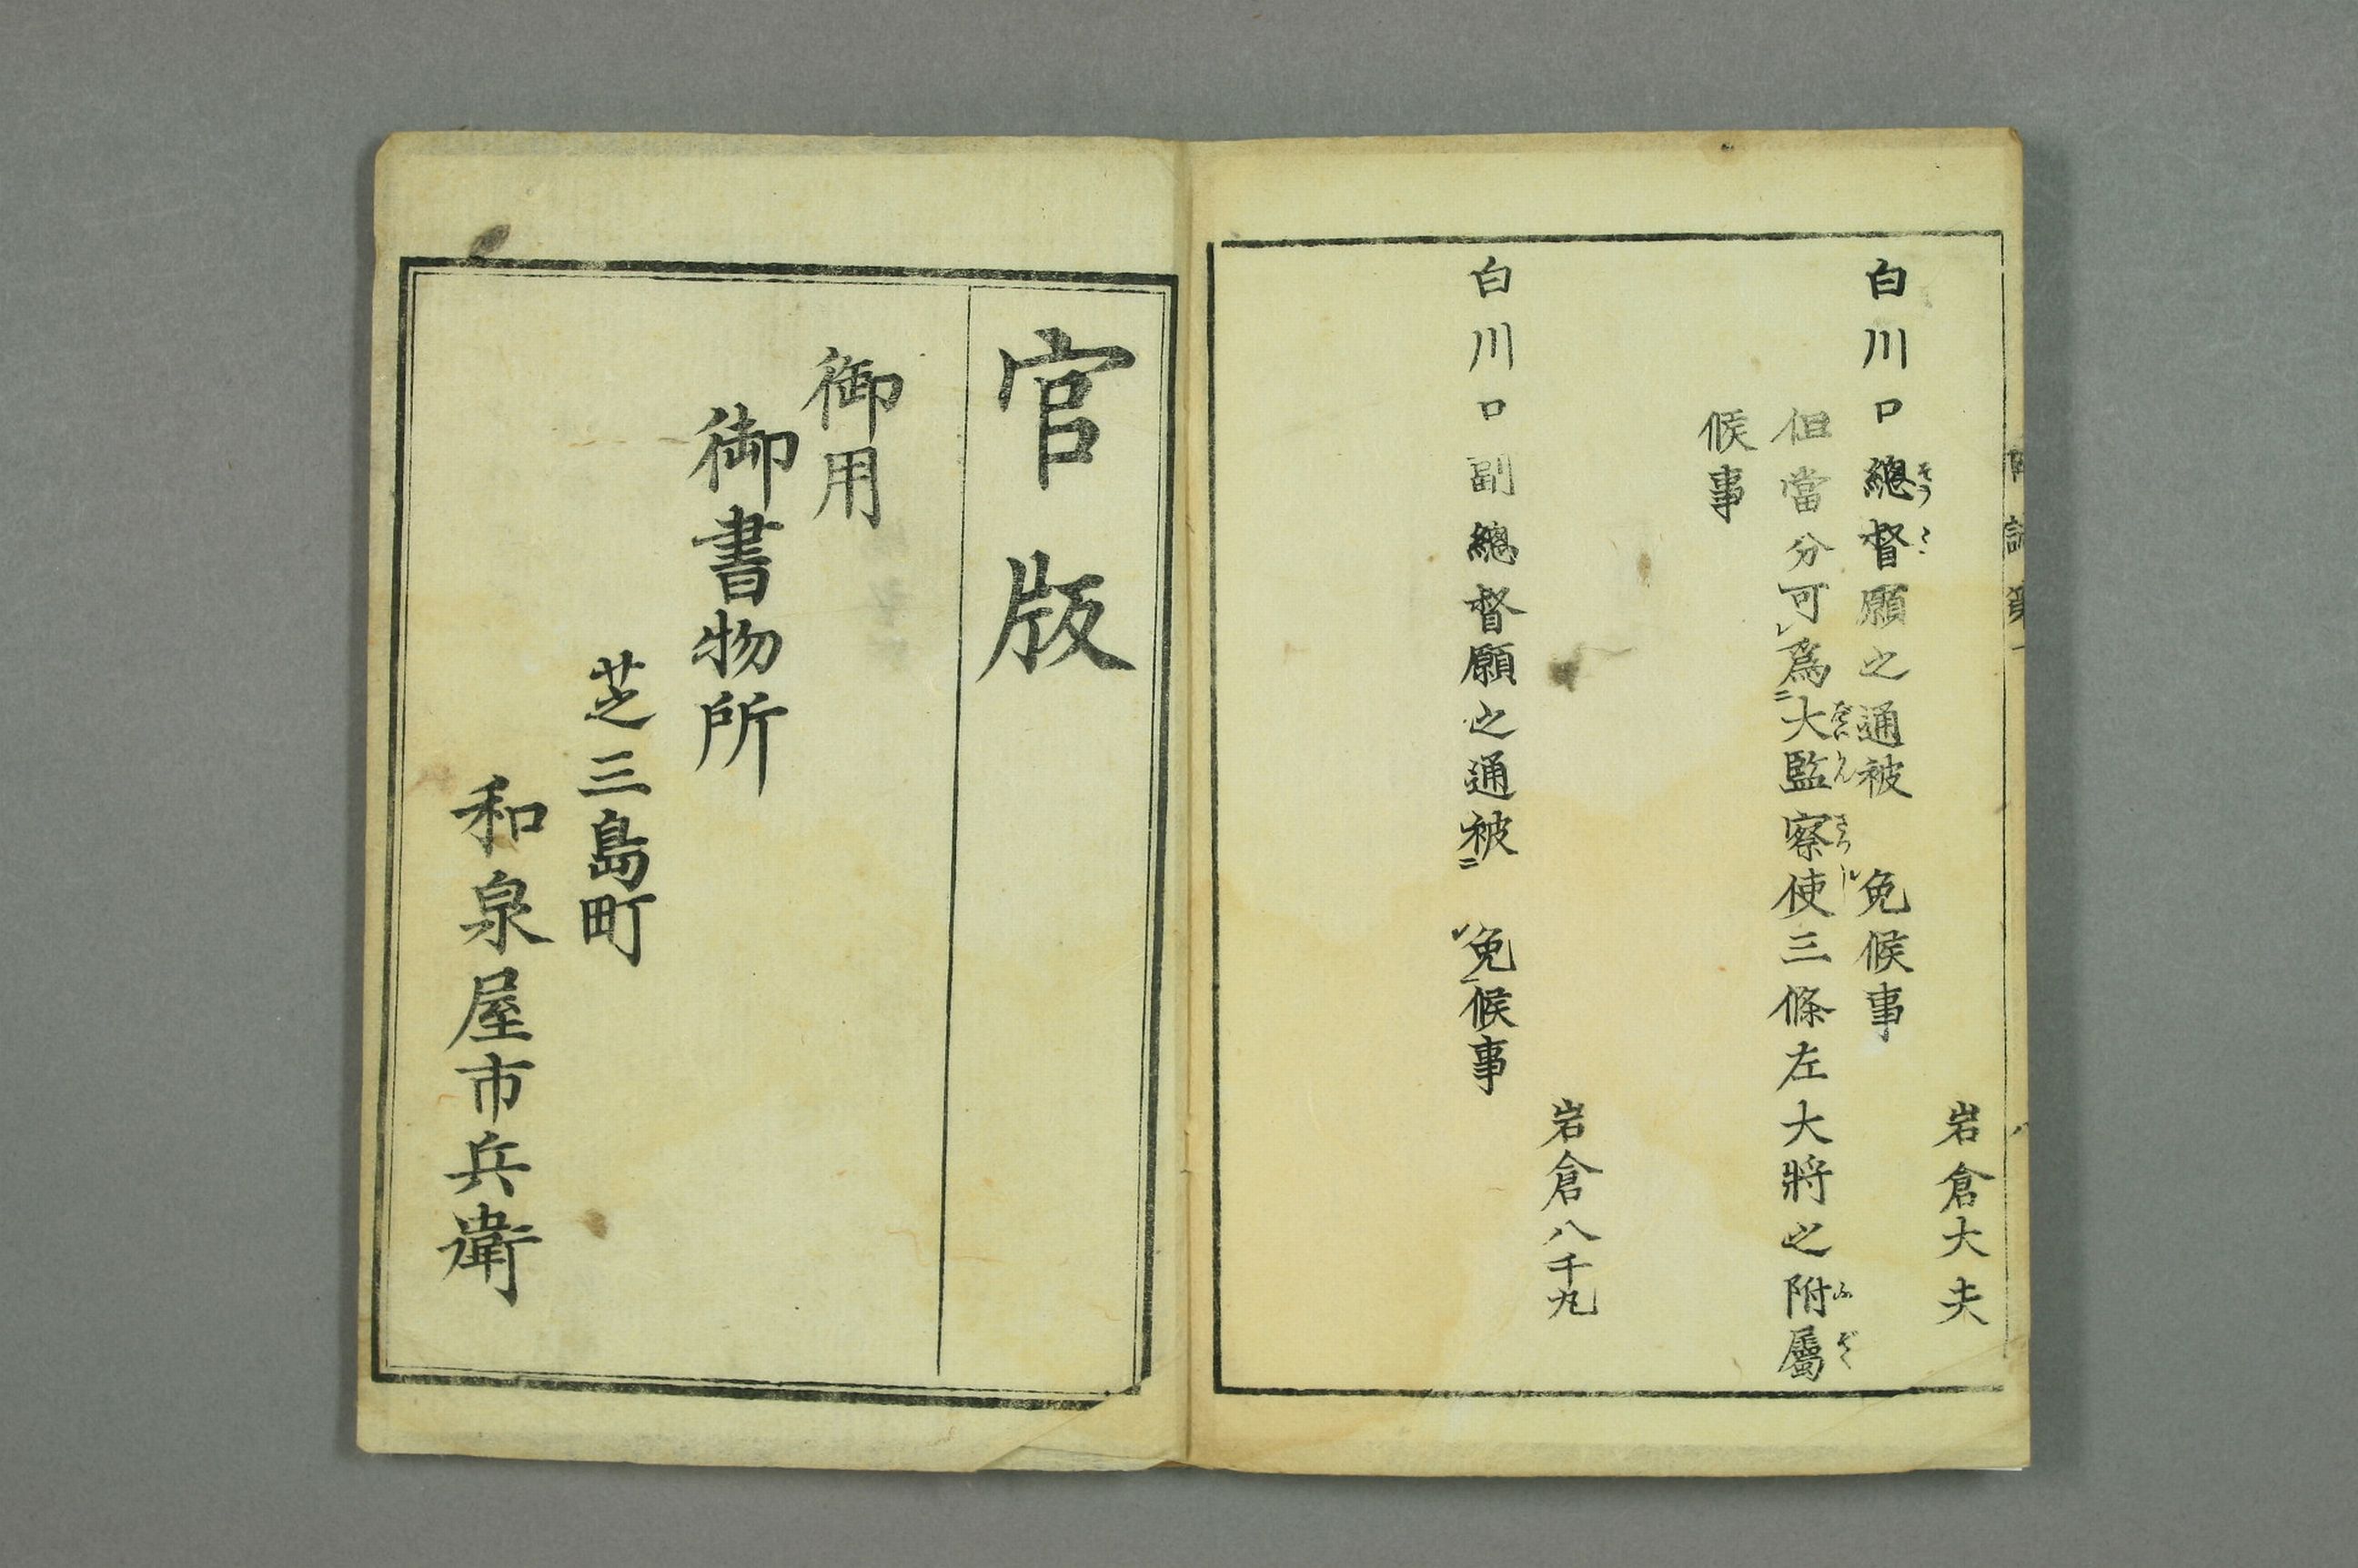 岩倉大夫
白川口總督願之通被 免候事
但當分可爲大監察使三條左大將之附屬
候事
岩倉八千丸
白川口副總督願之通被 免候事
官版
御用
御書物所
芝三島町
和泉屋市兵衛